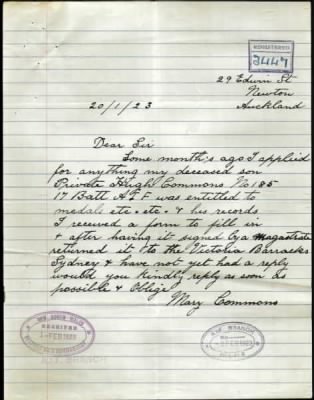 REGISTERED
3447
29 Edwin St
Newton
Auckland
20/1/23
Dear Sir
Some month's ago I applied
for anything my deceased son
Private Hugh Commons No 185
17 Batt AIF was entitled to
medals etc. etc. & his records
I received a form to fill in
& after having it signed by a Magistrate
returned it to the Victoria Barracks
Sydney & have not yet had a reply
would you kindly reply as soon as
possible & Oblige
Mary Commons
NEW SOUTH WALES
RECEIVED
FEB 1923
AIF BRANCH
FEB 1923